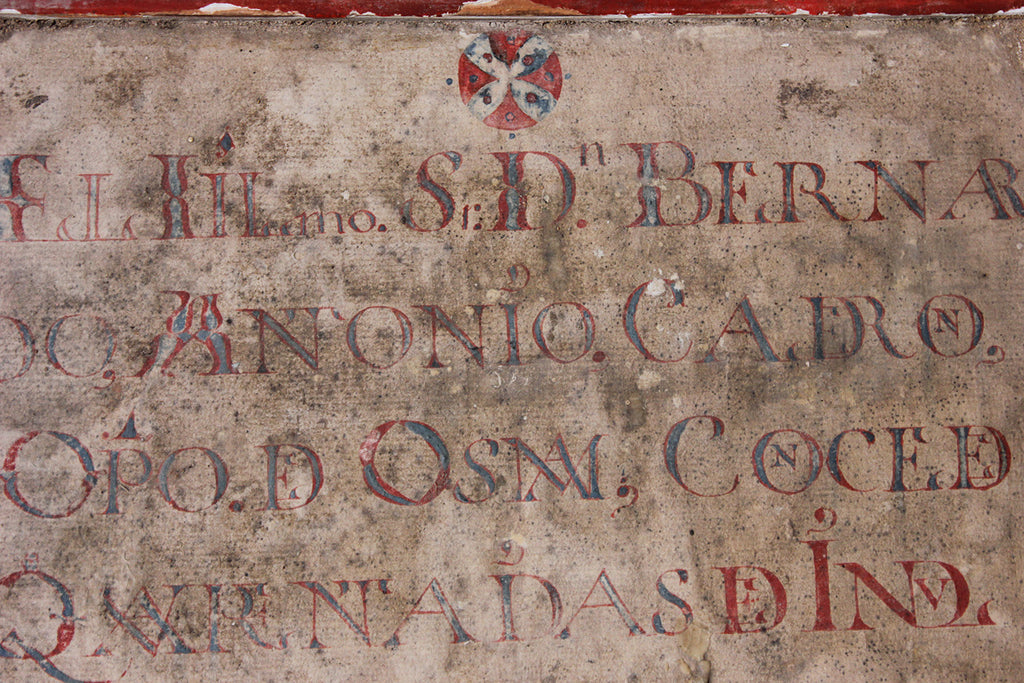 EL ILmo. Sr. Dn. BERNAR
DO, ANTONIO. CALDERON,
OPO. DE OSMA; CONCEDE
QUARENTA DIAS DE INDUL